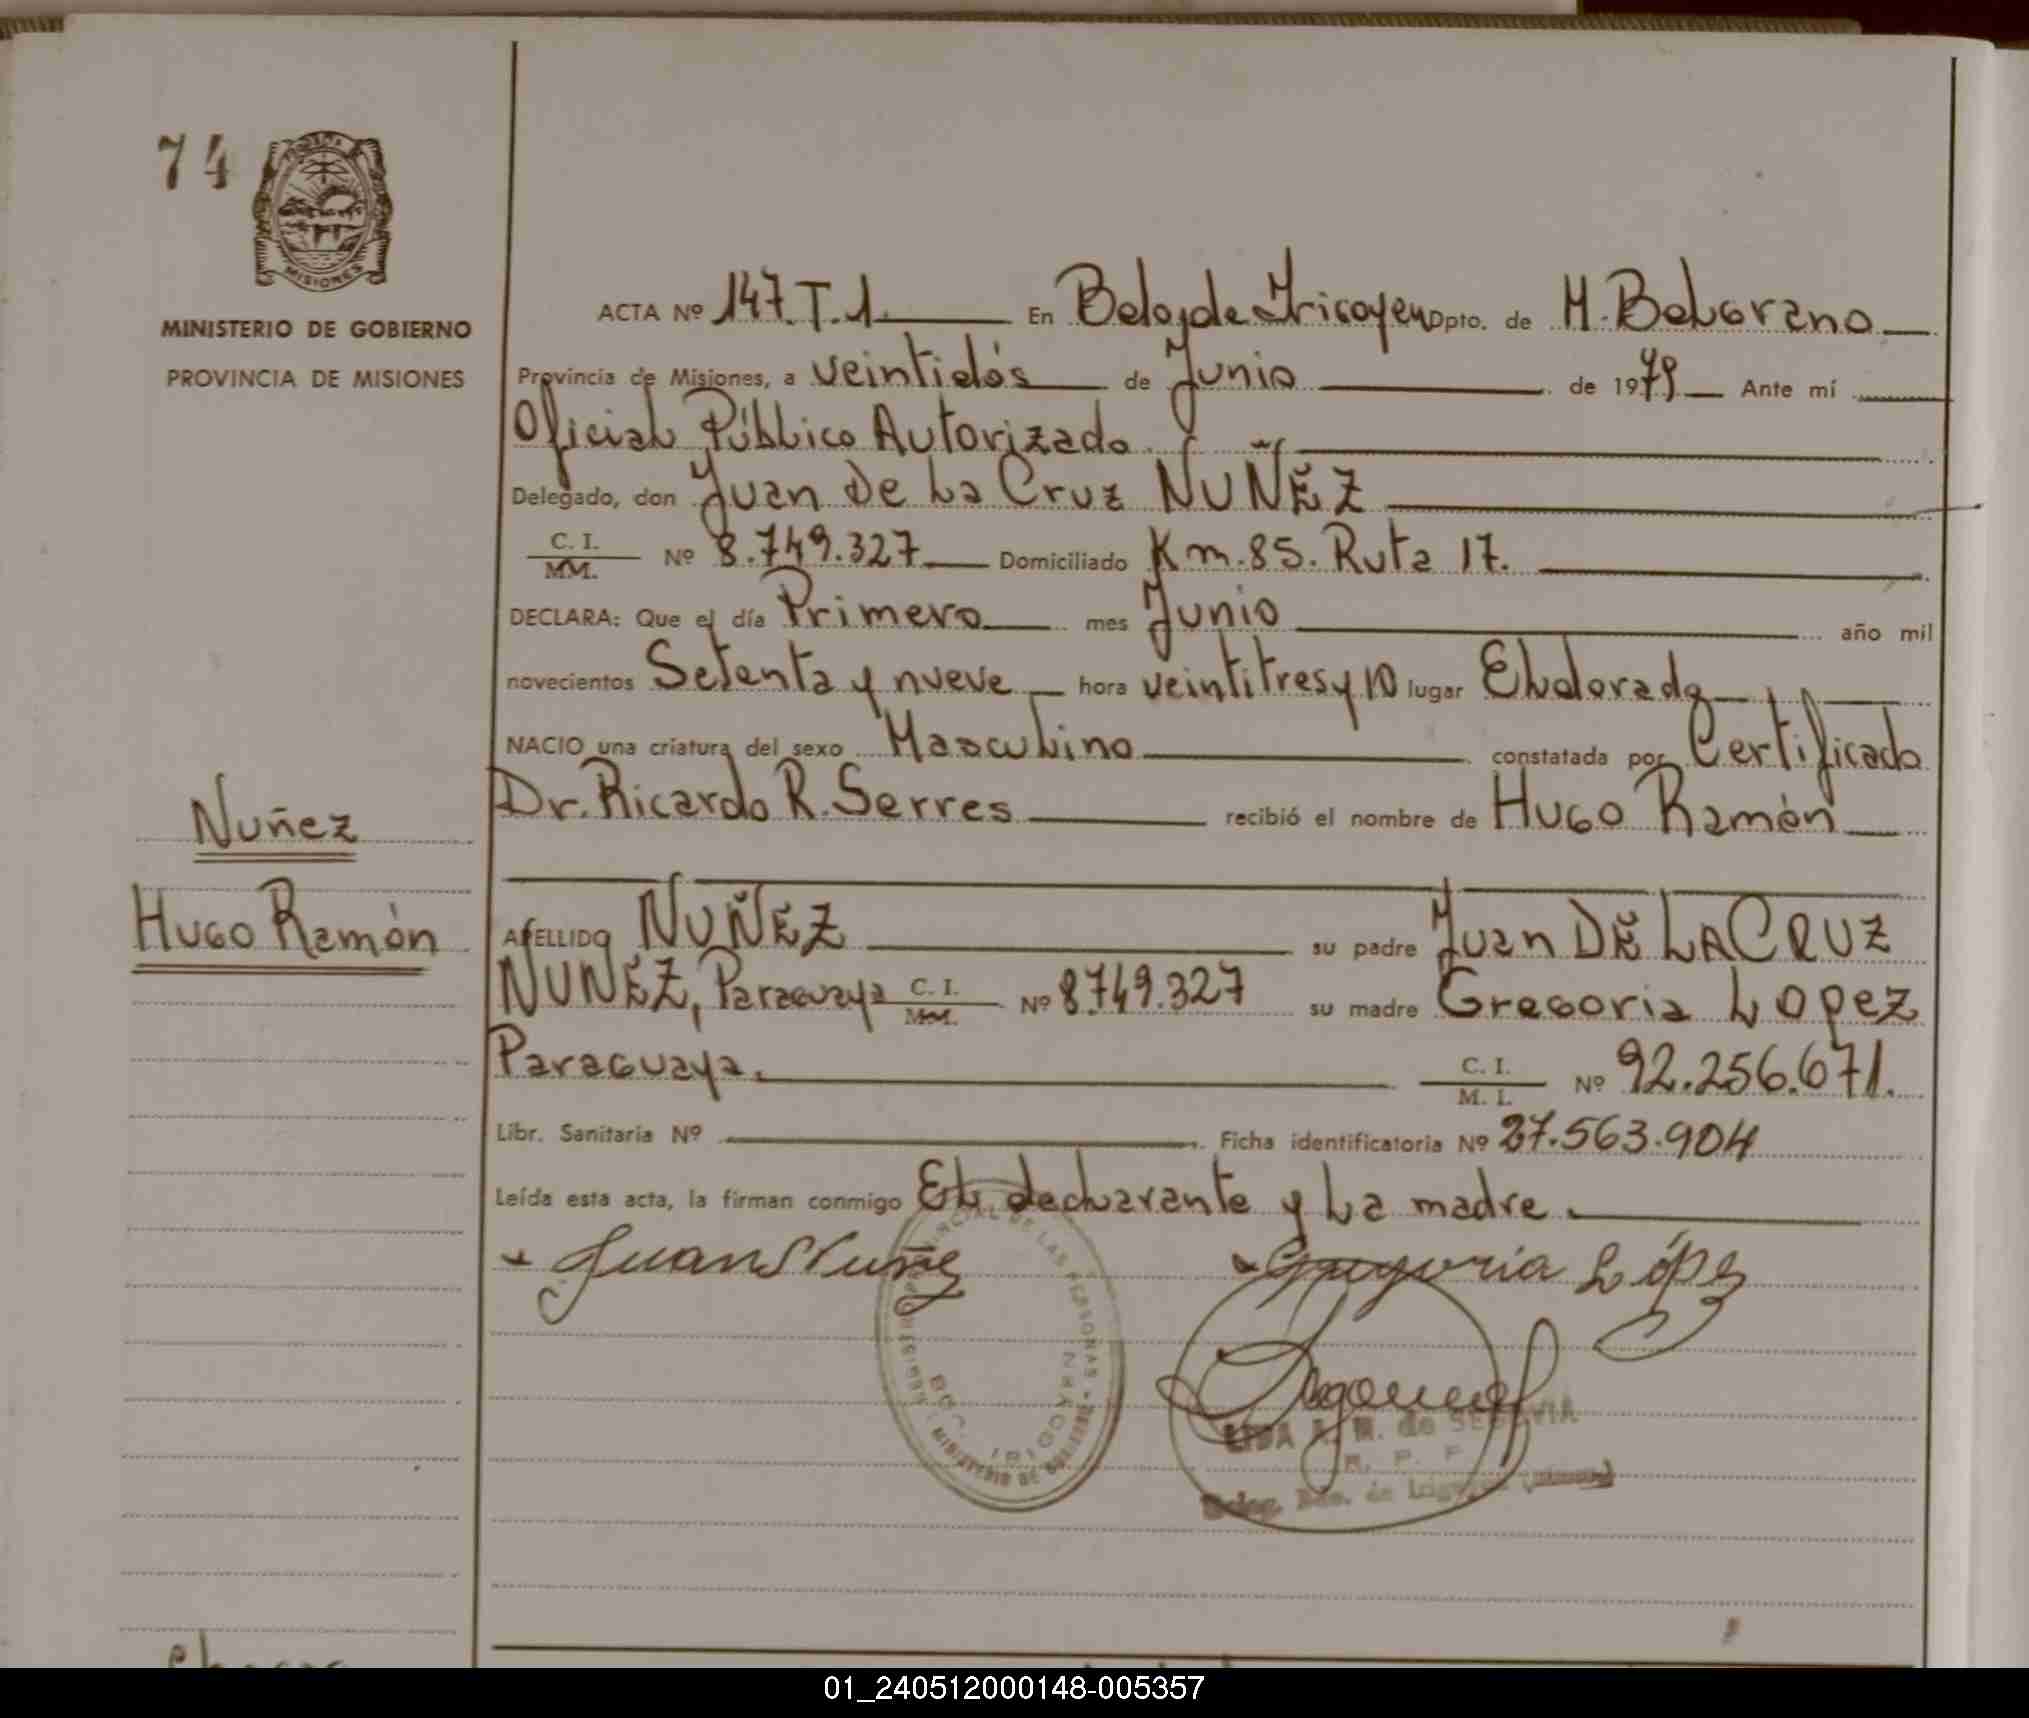 74
MISIONES
MINISTERIO DE GOBIERNO
PROVINCIA DE MISIONES
ACTA Nº 147.T.1. En Bdo, de Iricoyen Dpto. de M. Belgrano
Provincia de Misiones, a veintidós de Junio de 1979 Ante mí
Oficial Público Autorizado.
Delegado, don Juan De La Cruz NUÑEZ
C. I.
Nº 8.749.327 Domiciliado Km. 85. Ruta 17.
MM.
DECLARA: Que el día Primero mes Junio año mil
novecientos Setenta y nueve hora veintitres y 10 lugar Eldorado
NACIO una criatura del sexo Masculino constatada por Certificado
Dr. Ricardo R. Serres recibió el nombre de Hugo Ramón
Nuñez
Hugo Ramón
APELLIDO NUÑEZ su padre Juan DE LA CRUZ
NUÑEZ, Paraguaya C. I. Nº 8749.327 su madre Gregoria Lopez
Paraguaya. C. I. Nº 92.256.671.
M. I.
Libr. Sanitaria Nº Ficha identificatoria Nº 27.563.904
Leída esta acta, la firman conmigo El declarante y La madre.
Juan Nuñez Gregoria López
LIDA A. M. de SEGOVIA
Deleg. Bdo. de
01_240512000148-005357